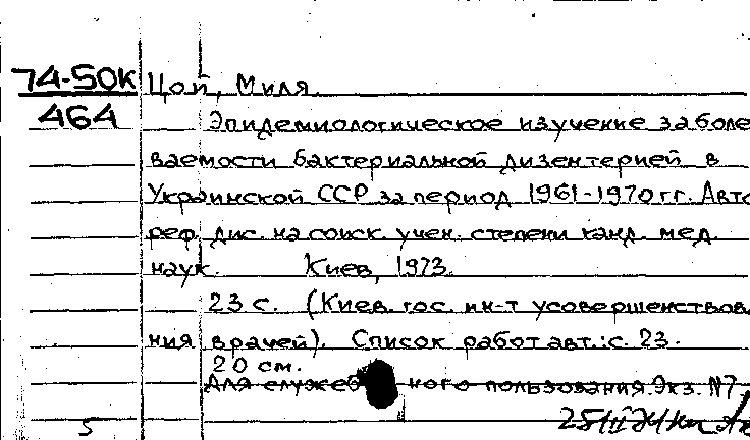 74-50К Цой, Миля
464 Эпидемиологическое изучение заболе
ваемости бактериальной дизентерией в
Украинской ССР за период 1961-1970 гг. Авто
реф. дис. на соиск. учен. степени канд. мед.
наук. Киев, 1973.
23 с. (Киев. гос. ин-т усовершенствова
ния врачей). Список работ авт.: с. 23.
20 см.
Для служеб ного пользования. Экз. №7
5